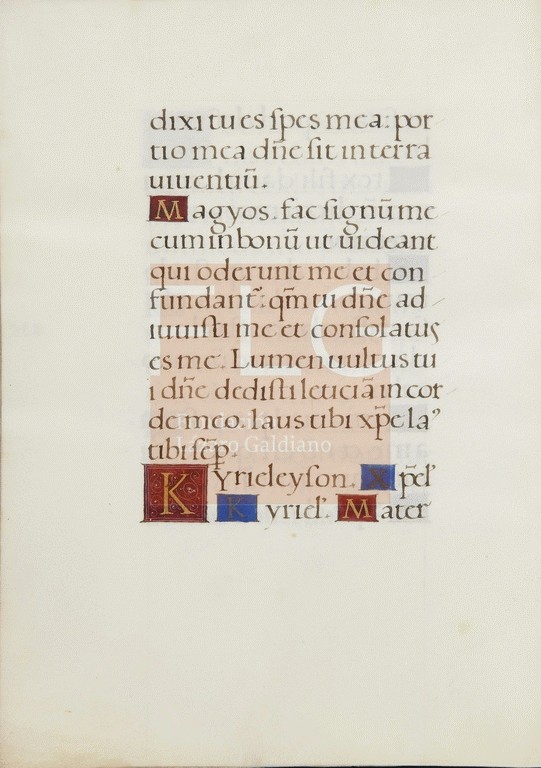 dixi tu es ſpes mea: por
tio mea dñe ſit in terra
uiuentiũ.
Magyos. fac ſignũ me
cum in bonũ ut uideant
qui oderunt me et con
fundant᷑: qm̃ tu dñe ad
iuuiſti me et conſolatus
es me. Lumen uultus tu
i dñe dediſti leticiã in cor
de meo. laus tibi xp̃e laꝰ
tibi ſẽp.
Kyrieleyſon. Xp̃el'
Kyriel'. Mater
FLG
Lázaro Galdiano